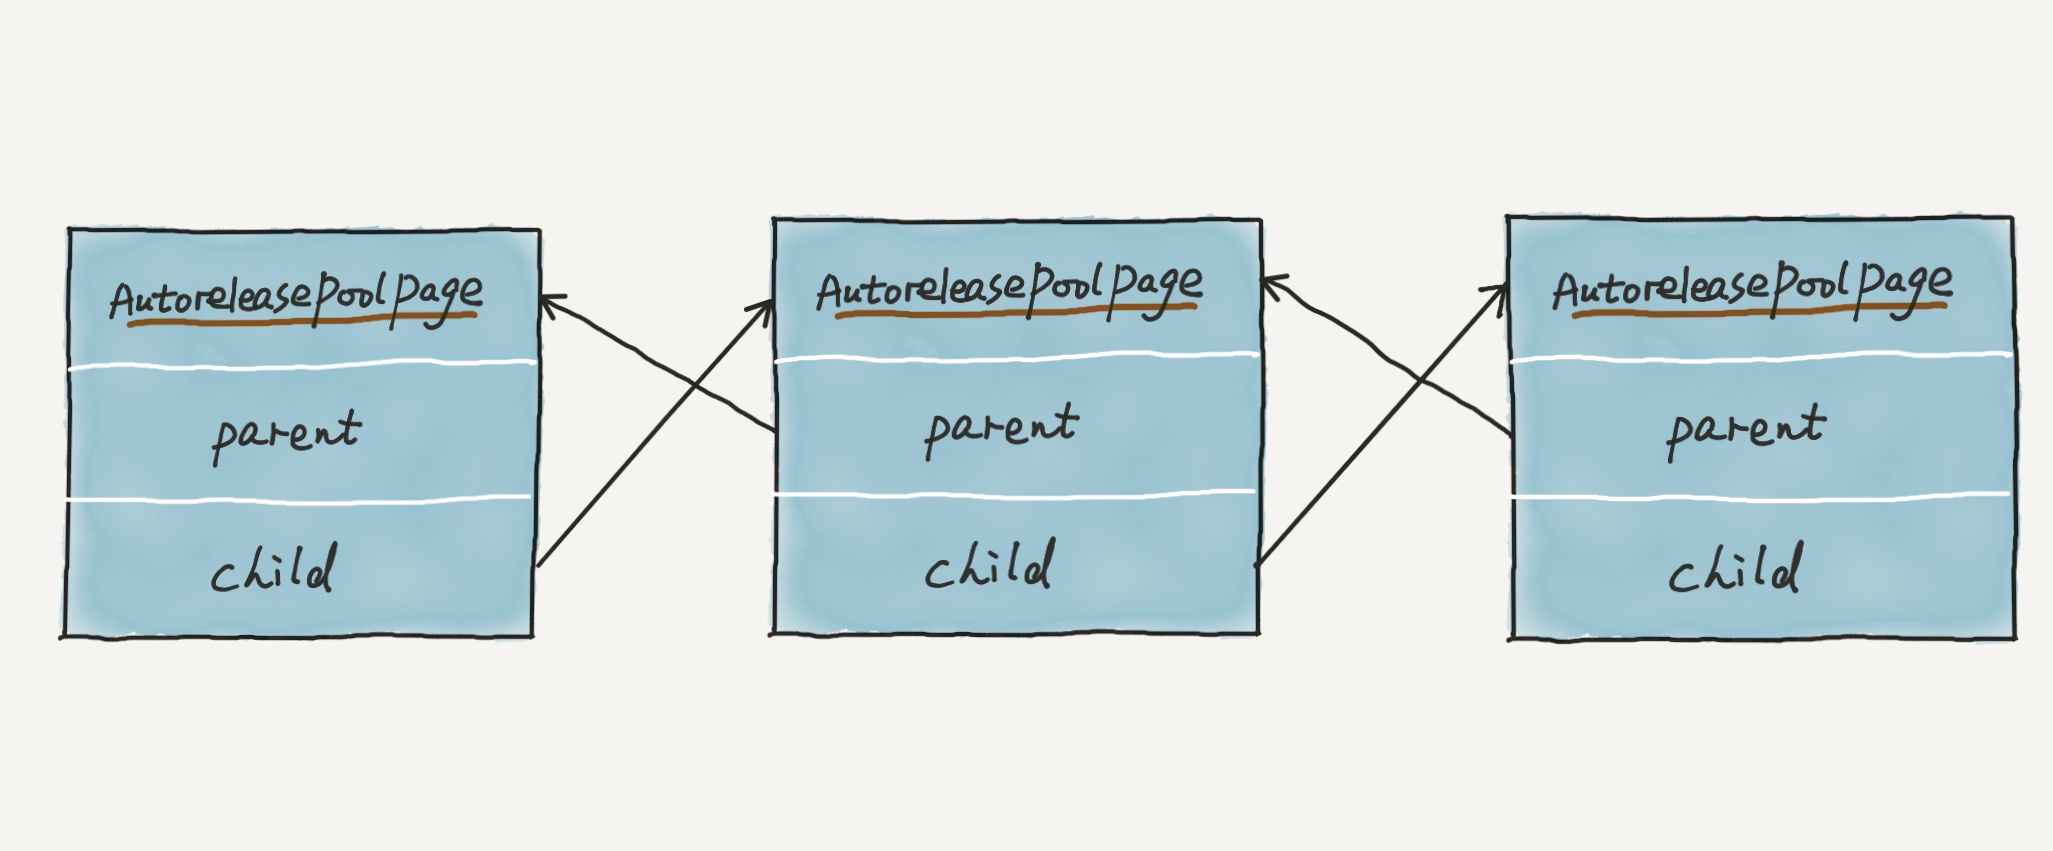 AutoreleasePoolPage
parent
child
AutoreleasePoolPage
parent
child
AutoreleasePoolPage
parent
child